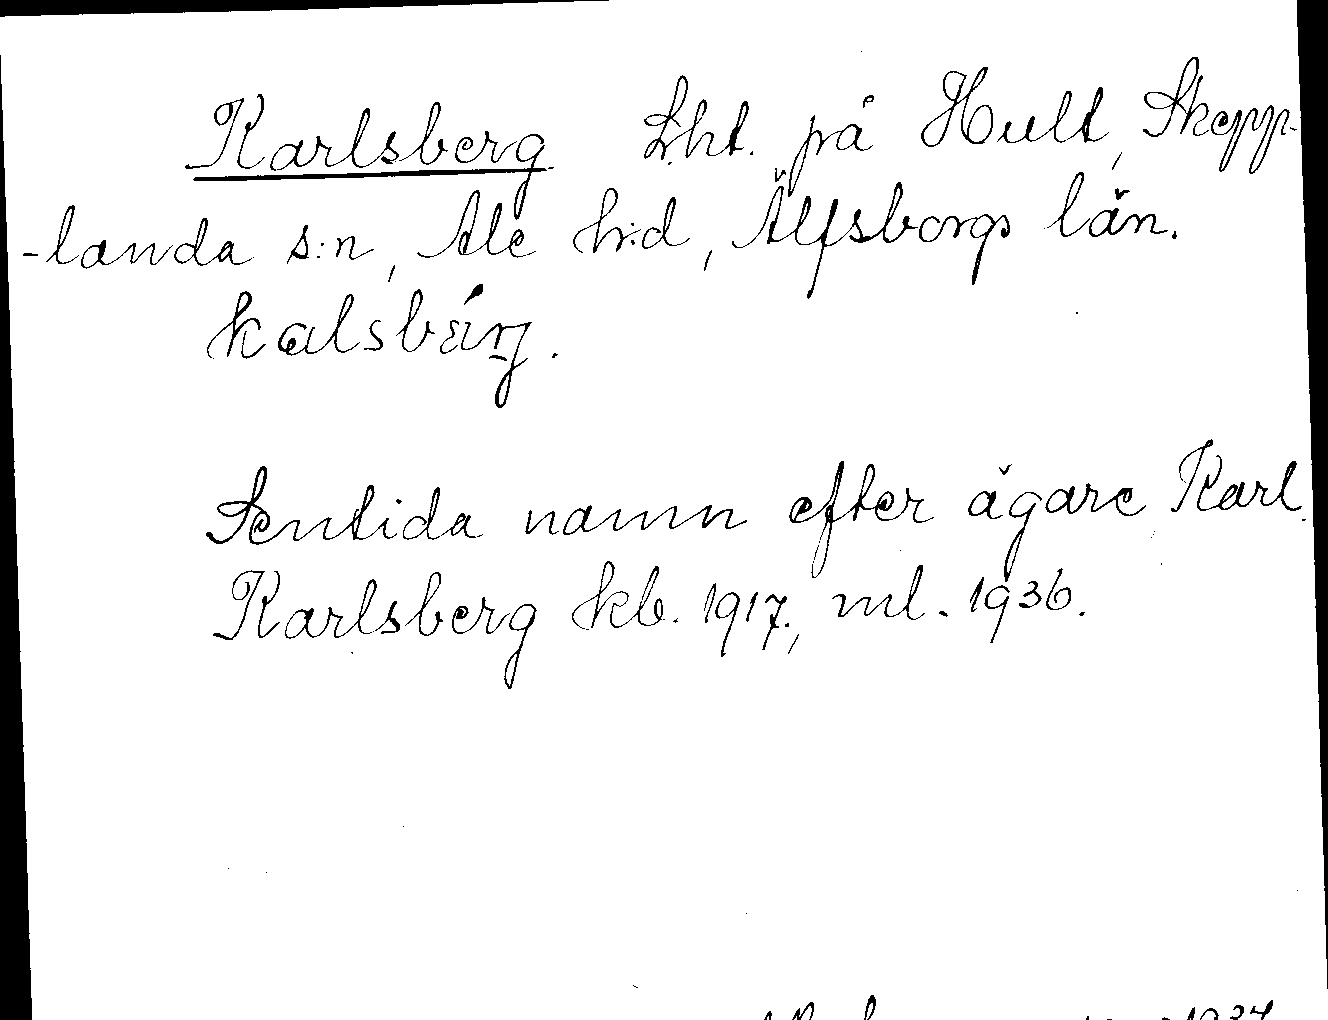 Karlsberg Lht. på Hult, Skepp-
-landa s:n, Ale h:d, Älfsborgs län.
kalsbärj.
Sentida namn efter ägare Karl.
Karlsberg kb. 1917., ml. 1936.
1937